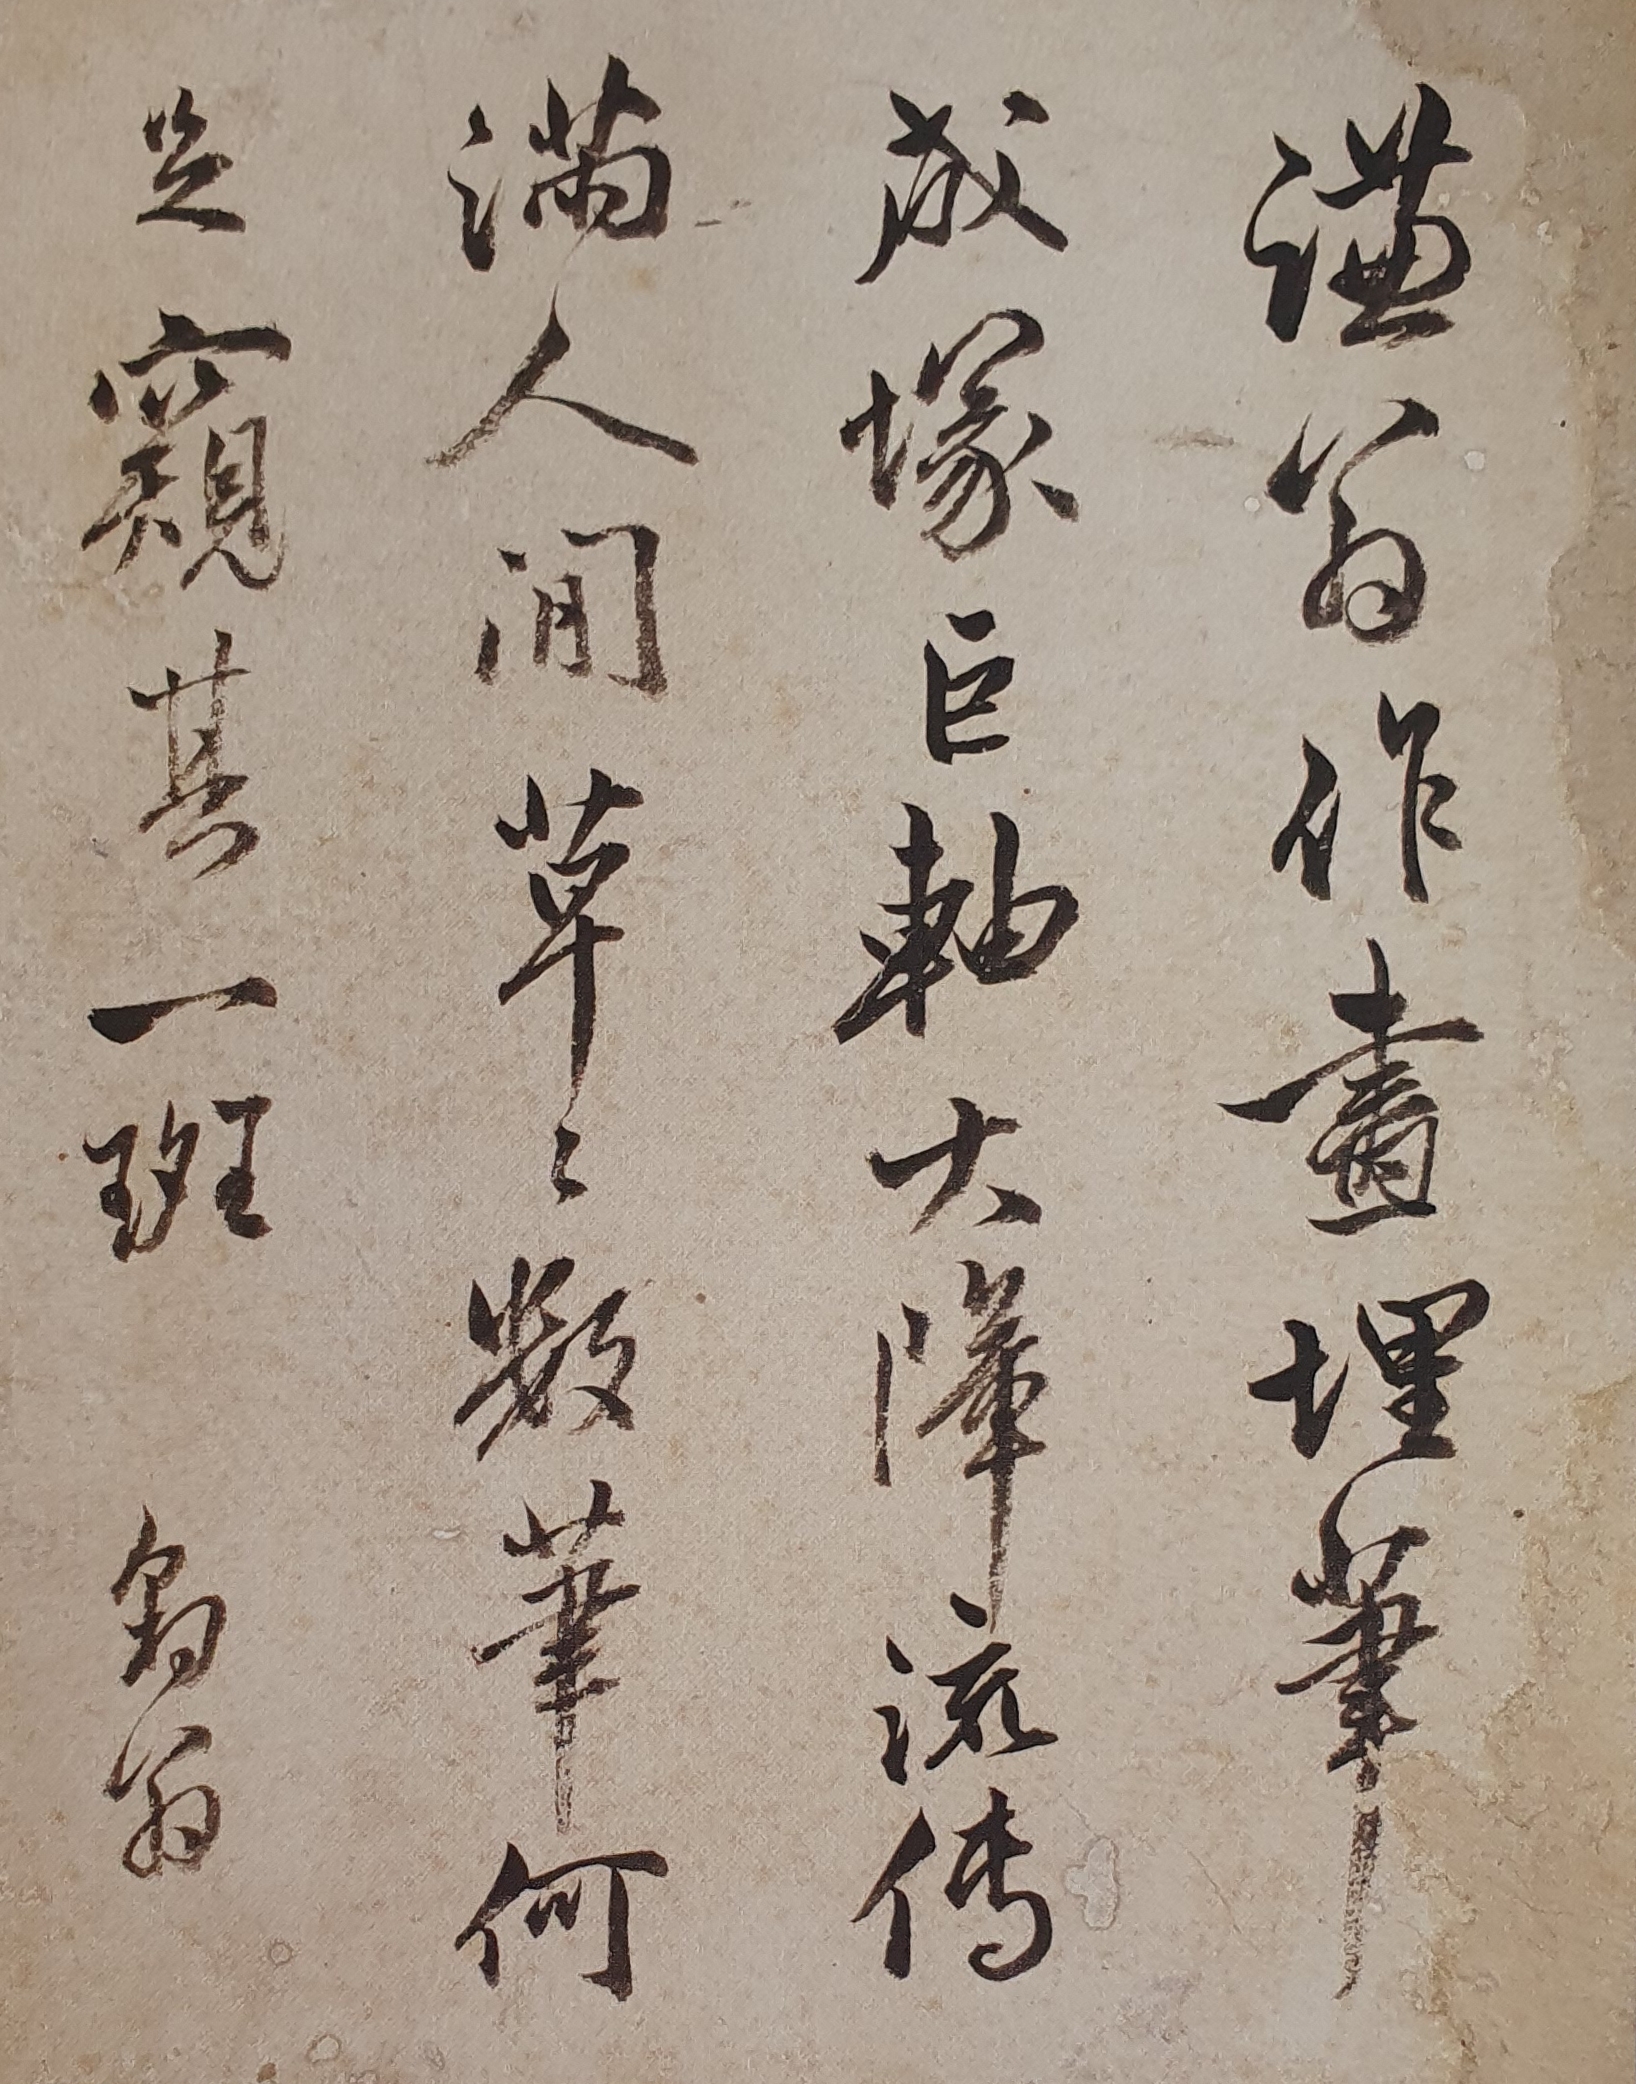 謙翁作畫埋筆
成塚巨軸大障流傳
滿人間草々數筆何
足窺其一斑 翁